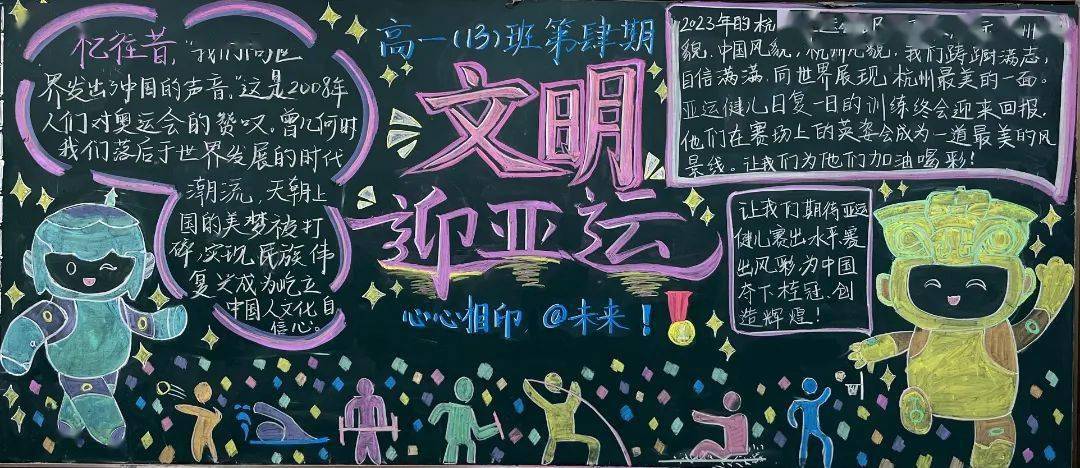 忆往昔，"我们向世
界发出了中国的声音。"这是2008年
人们对奥运会的赞叹。曾几何时
我们落后于世界发展的时代
潮流，天朝上
国的美梦被打
碎，实现民族伟
复兴成为屹立
中国人文化自
信心。
高一(13)班第肆期
文明
迎亚运
心心相印 @未来！
2023年的杭 州
貌，中国风貌，杭州风貌，我们踌躇满志，
自信满满，向世界展现，杭州最美的一面。
亚运健儿日复一日的训练终会迎来回报，
他们在赛场上的英姿会成为一道最美的风
景线。让我们为他们加油喝彩！
让我们期待亚运
健儿赛出水平，赛
出风彩，为中国
夺下桂冠，创
造辉煌！